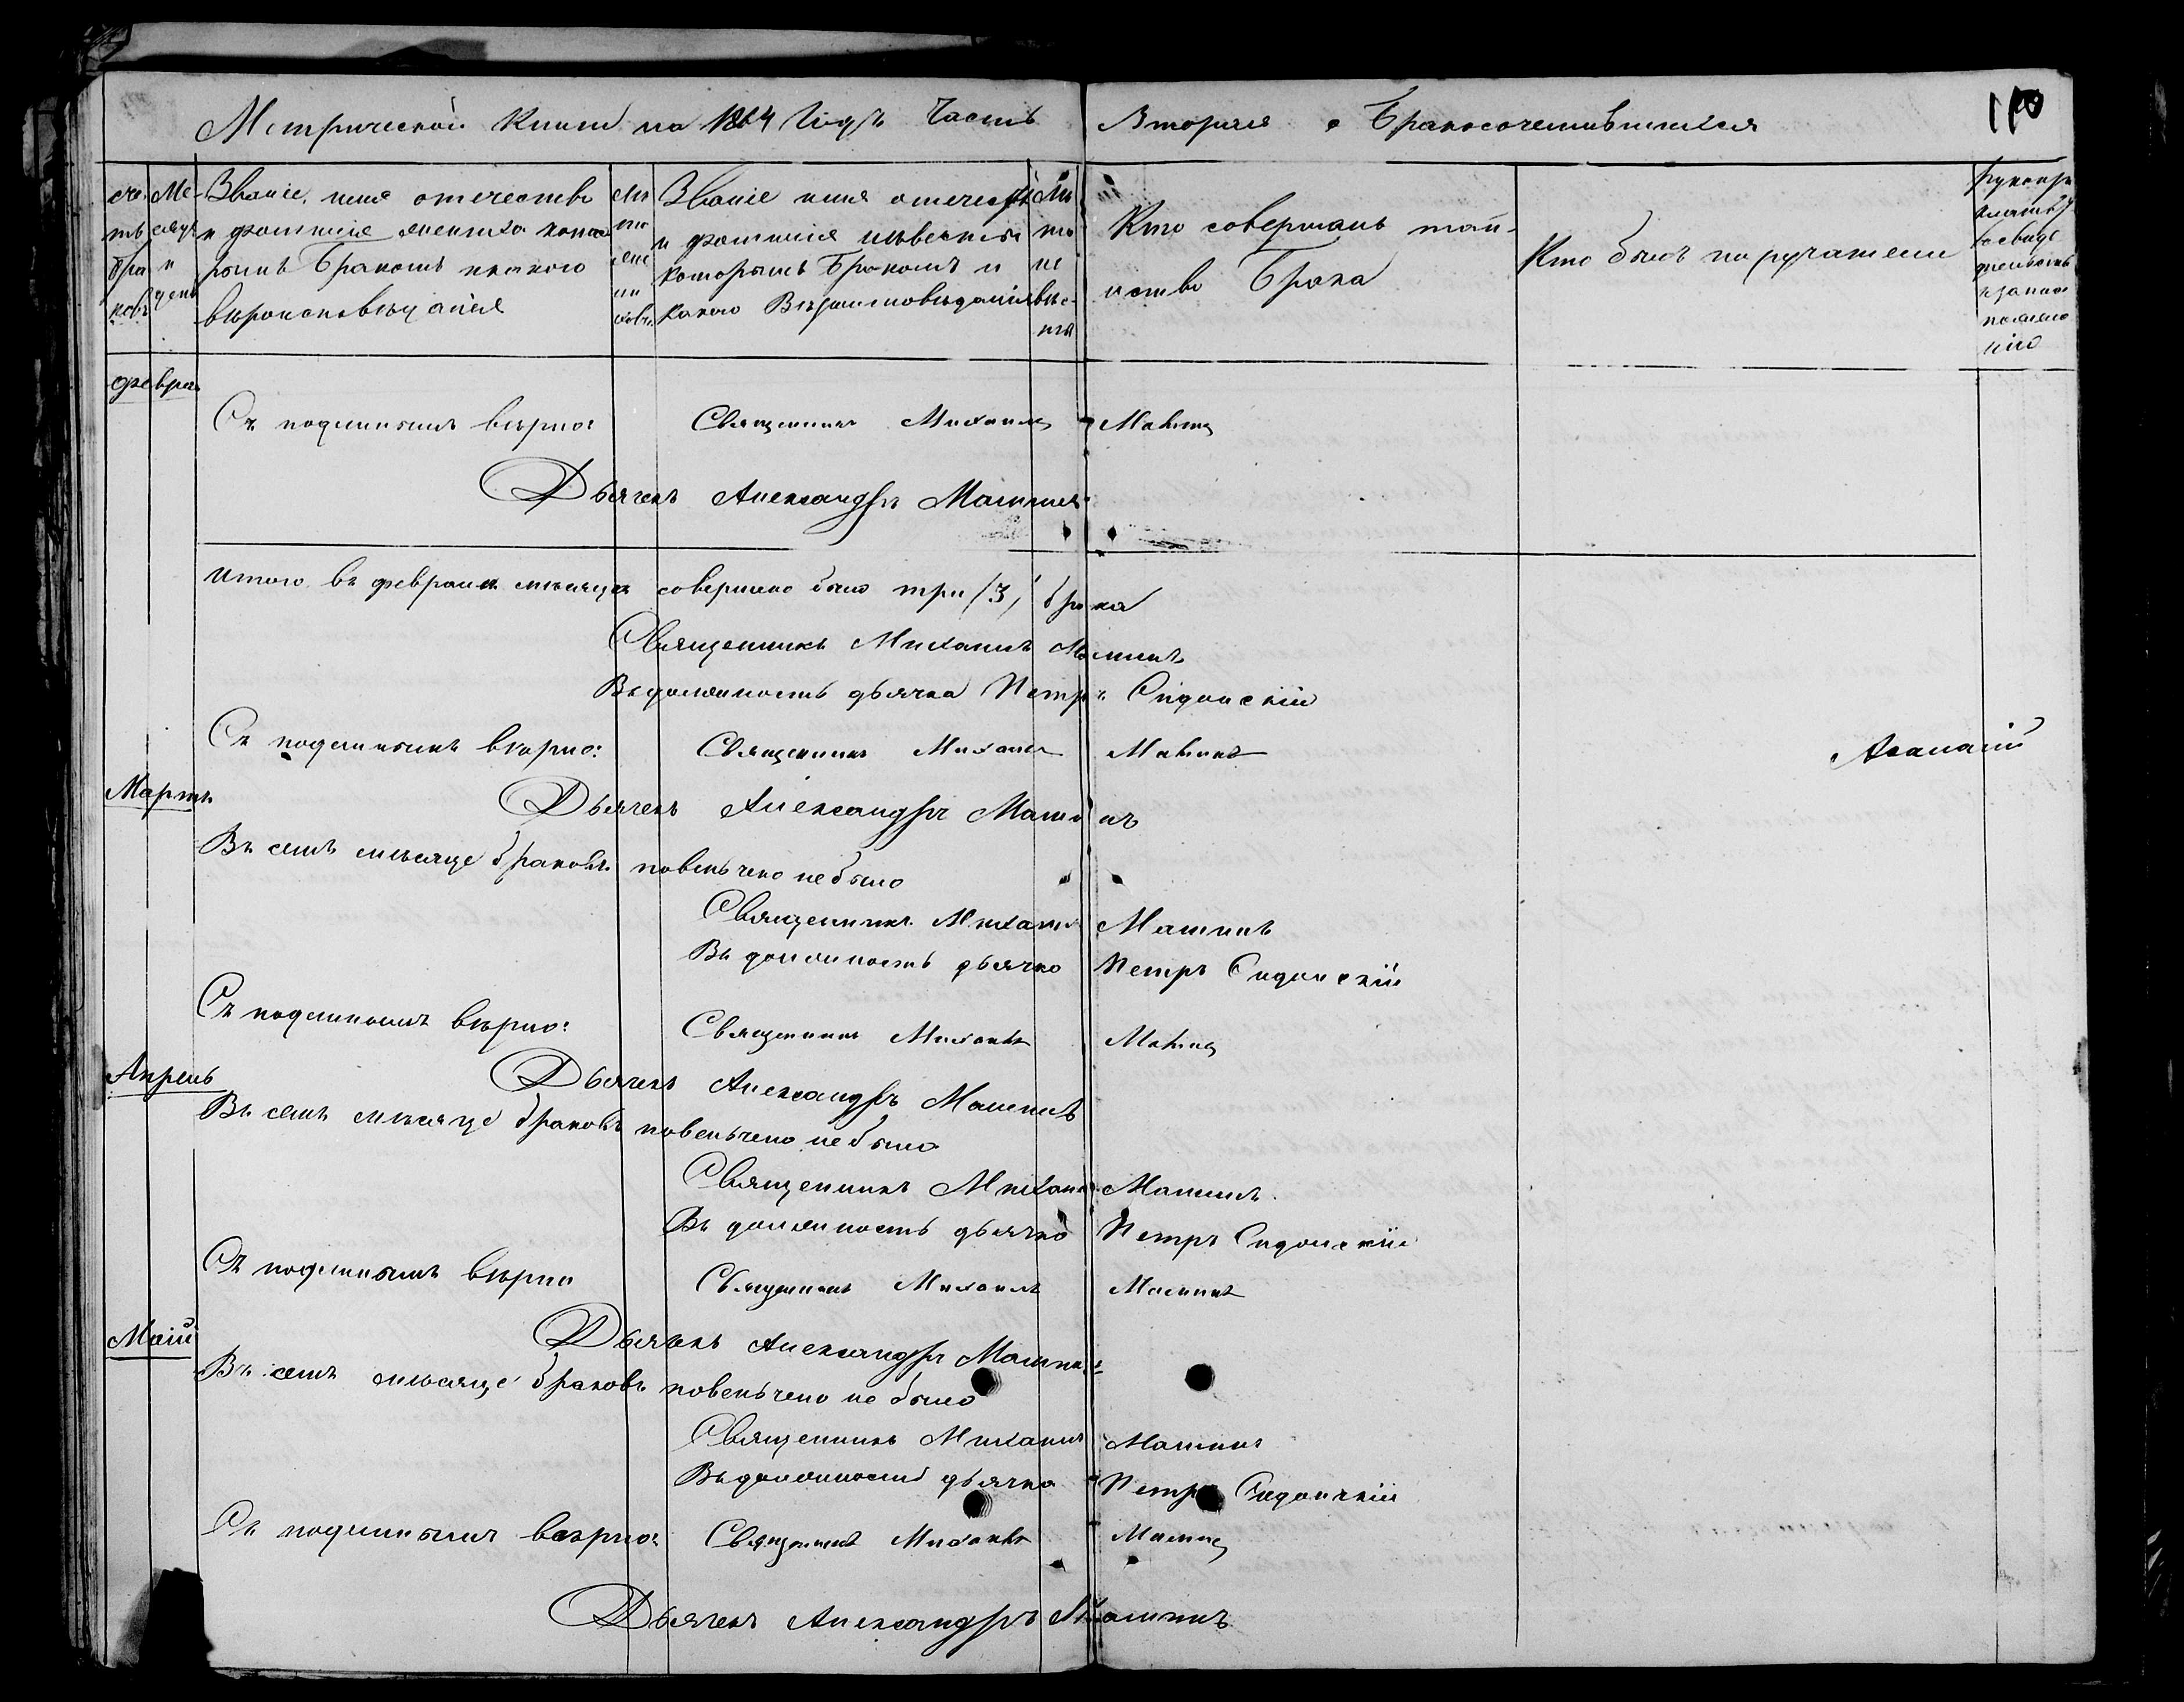 Метрической Книги на 1864 Годъ Часть Вторая о Бракосочетавшихся
110
Сче- тъ бра ковъ
Ме- сяцъ и день
Званіе, имя отечество и фамилія жениха которымъ бракомъ и какого вѣроисповѣданія
Лѣ та жени ховъ
Званіе имя отечество и фамилія невесты которымъ бракомъ и какого Вѣроисповѣданія
Лѣ та не вес- ты
Кто совершалъ таинство Брака
Кто былъ поручатели
февра
Съ подлиннымъ вѣрно: Священникъ Михаилъ Малинъ
Дьячекъ Александръ Малининъ
Итого въ февралѣ мѣсяцѣ совершено было три /3/ брака
Священникъ Михаилъ Малинъ
Въ должность дьячка Петръ Сидонскій
Съ подлиннымъ вѣрно: Священникъ Михаилъ Малинъ
Аѳанасій
Мартъ
Дьячекъ Александръ Малинъ
Въ семъ мѣсяце браковъ повенчено не было
Священникъ Михаилъ Малинъ
Въ должность дьячка Петръ Сидонскій
Съ подлиннымъ вѣрно: Священникъ Михаилъ Малинъ
Апрель
Дьячекъ Александръ Малинъ
Въ семъ мѣсяце браковъ повенчено не было
Священникъ Михаилъ Малинъ
Въ должность дьячка Петръ Сидонскій
Съ подлиннымъ вѣрно Священникъ Михаилъ Малинъ
Маій
Дьячекъ Александръ Малинъ
Въ семъ мѣсяце браковъ повенчено не было
Священникъ Михаилъ Малинъ
Въ должность дьячка Петръ Сидонскій
Съ подлиннымъ вѣрно: Священникъ Михаилъ Малинъ
Дьячекъ Александръ Малинъ